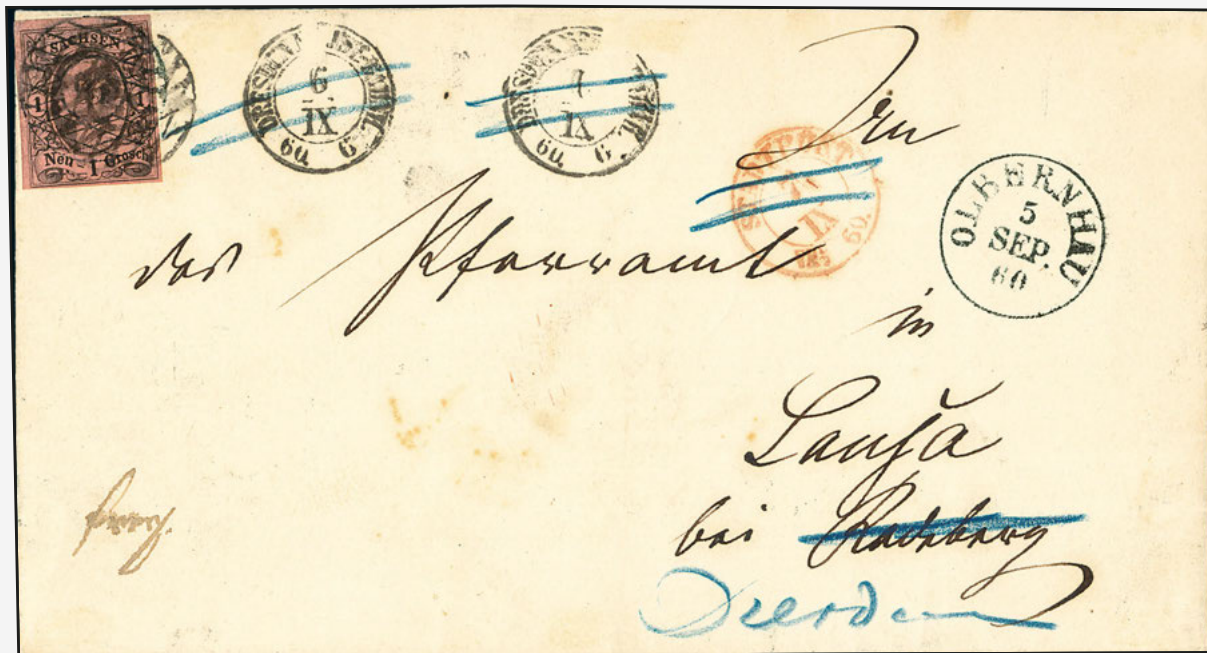 SACHSEN
1 1
Neu - 1 Grosch
6
IX
60. G.
7
IX
60. G.
STADTPOST
7
IX
60.
OLBERNHAU
5
SEP.
60
das Pfarramt
in
Lausa
bei Radeberg
Dresden